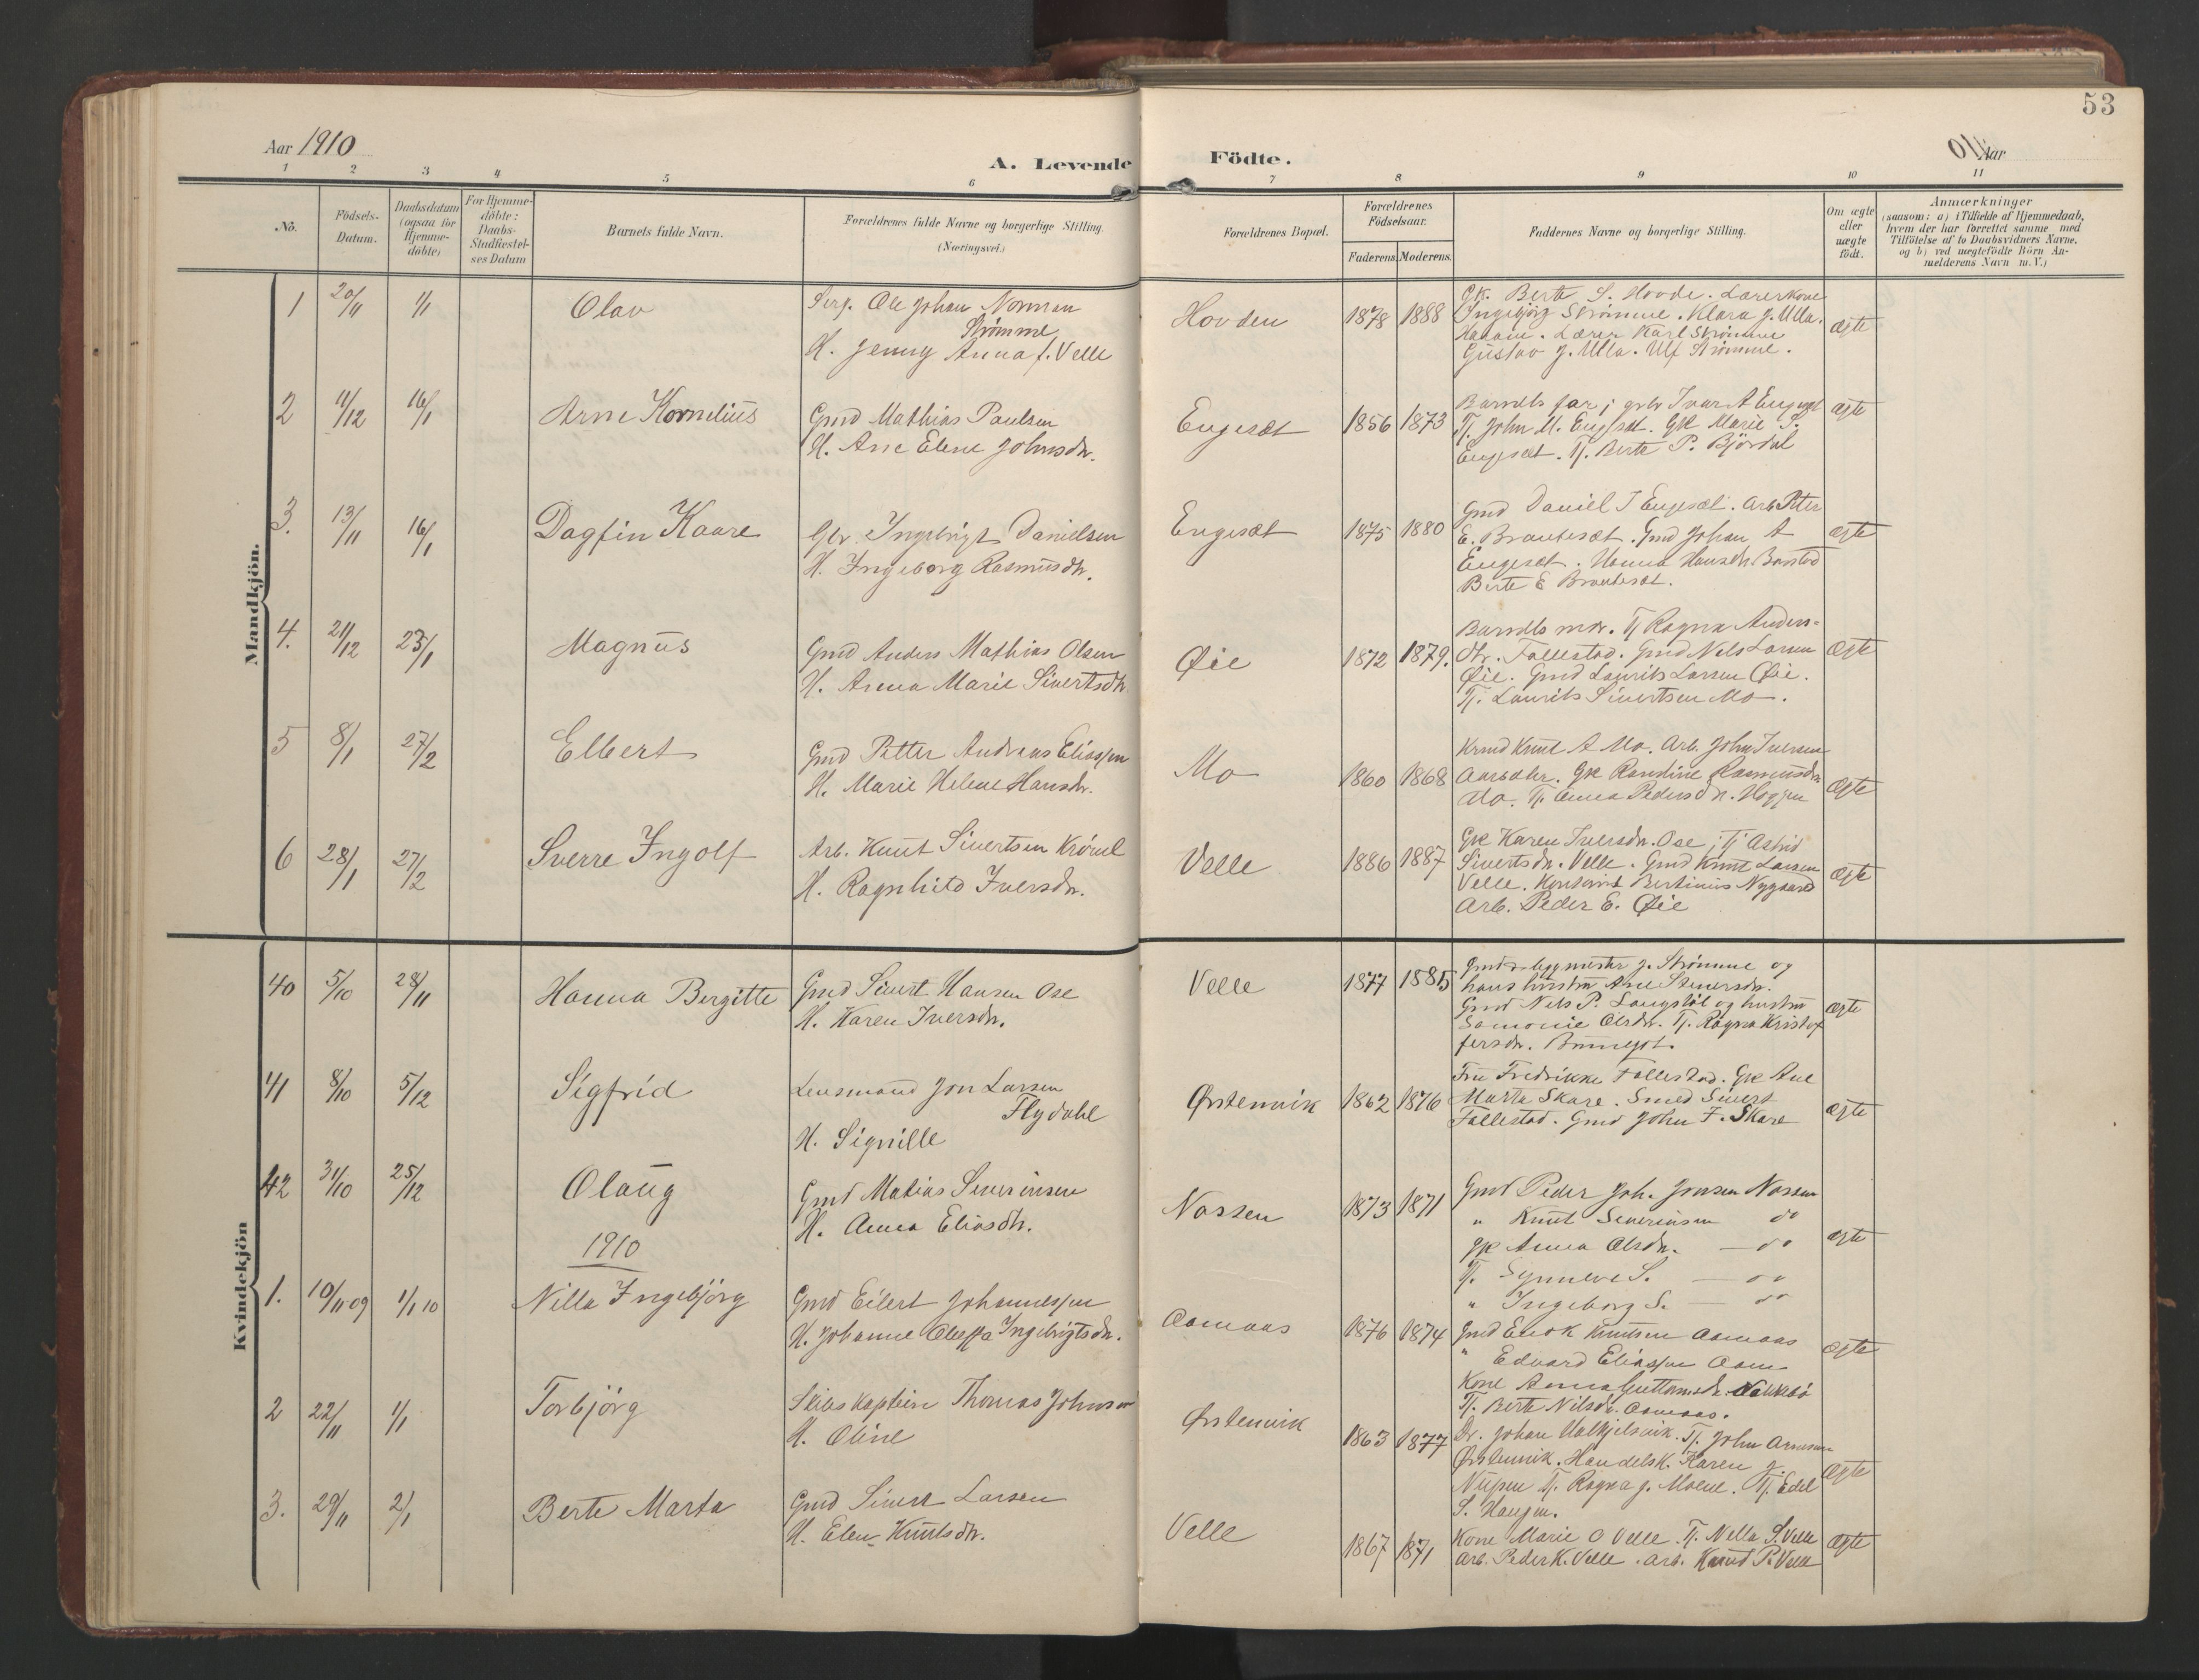 53
Aar 1910
A. Levende Födte.
Aar
1 2 3 4 5 6 7 8 9 10 11
No.
Födsels-Datum.
Daabsdatum (ogsaa for Hjemme-döbte)
For Hjemme-döbte: Daabs-Stadfæstel-ses Datum
Barnets fulde Navn.
Forældrenes fulde Navne og borgerlige Stilling. (Næringsvei.)
Forældrenes Bopæl.
Forældrenes Födselsaar.
Faderens. Moderens.
Faddernes Navne og borgerlige Stilling.
Om ægte eller uægte födt.
Anmærkninger
(saasom: a) i Tilfælde af Hjemmedaab,
hvem der har forrettet samme med
Tilföielse af to Daabsvidners Navne,
og b) ved uægtefödte Börn An-
melderens Navn m. V.)
Mandkjön.
1 20/11 1/1 Olav
Serg. Ole Johan Norman
Strømme
H. Jenny Anna f. Velle
Hovden 1878 1888
Gk. Berte S. Hovde. Lærerkone
Ingebjörg Strömme. Klara J. Ulla.
Lærer Karl Strömme
Gustav J. Ulla. Ulf Strömme.
ægte
2 11/12 16/1 Arne Kornelius
Gmd Mathias Paulsen
H. Ane Eline Johnsdr.
Engeset 1856 1873
Barnets far; gbr Ivar A Engeset
Tj. John M. Engeset. Gk Marie S.
Engeset. Tj. Berte P. Björdal
ægte
3. 13/11 16/1 Dagfin Kaare
Gbr. Ingebrigt Danielsen
H. Ingeborg Rasmusdr.
Engeset 1875 1880
Gmd Daniel I Engeset. Arb Peter
E. Brauteset. Gmd Johan A
Engeset. Hanna Hansdr. Barstad
Berte E Brauteset.
ægte
4. 21/12 23/1 Magnus
Gmd Anders Mathias Olsen
H. Anna Marie Sivertsdr
Øie 1872 1879.
Barnets mor. Tj Ragna Anders-
dtr. Follestad. Gmd Nels Larsen
Øie. Gmd Laurits Larsen Øie.
Tj. Laurits Sivertsen Mo.
ægte
5 8/1 27/2 Elbert
Gmd Petter Andreas Eliassen
H. Marie Helene Hansdr.
Mo 1860 1868
Krmd Knut A Mo. Arb. John Iversen
Gk Randine Rasmusdr
Mo. Tj. Anna Pedersdr.
ægte
6 28/1 27/2 Sverre Ingolf
Arb. Knut Sivertsen
H. Ragnhild Iversdr.
Velle 1886 1887
Gk Karen Iversdr. Ose; Tj Astrid
Sivertsdr. Velle. Gmd Knut Larsen
Velle. Kontorist Bertinius Nygaard
Arb. Peder E. Øie
ægte
Kvindekjön
40 5/10 28/11 Hanna Bergitte
Gmd Sivert Hansen Ose
H. Karen Iversdr.
Velle 1877 1885
J. Strömme og
hans hustru Ane Steversdr.
Gmd Nels P. Langstöl og hustru
Olsdr. Tj. Ragna Kristof
fersdr.
ægte
41 8/10 5/12 Sigfrid
Lensmand Jon Larsen
Flydahl
H. Signille
Ørstenvik 1862 1876
Fru Fredrikke Follestad. Gk Ane
Marta Skare. Smed Sivert
Follestad. Gmd John F. Skare
ægte
42 31/10 25/12 Olaug
Gmd Matias Severinsen
H. Anna Eliasdtr.
Nossen 1873 1871
Gmd Peder Joh. Jonsen Nossen
" Knut Severinsen do
Gk Anna Olsdr. — do
Tj. Synneve S. — do
" Ingeborg S. — do
ægte
1910
1. 10/11 09 1/1 10 Nilla Ingebjörg
Gmd Eilert Johannessen
H. Johanne Oleffa Ingebrigtsdr.
Aamaas 1876 1874
Gmd Enok Knutsen Aamaas
" Edvard Eliassen Aam
Kone Anna Guttormsdr.
Tj. Berte Nilsdr. Aamaas.
ægte
2 22/11 1/1 Torbjörg
Skibskaptein Thomas Johnsen
H. Oline
Ørstenvik 1863 1877
Dr. Johan Valkjelsvik. Tj. John Arnesen
Ørstenvik. Handelsk. Karen J.
Nupen Tj. Ragna J. Moene. Tj. Edel
S. Haugen.
ægte
3. 29/11 2/1 Berte Marta
Gmd Sivert Larsen
H. Elen Knutsdr.
Velle 1867 1871
Kone Marie O Velle. Tj. Nella S. Velle
Arb. Peder K. Velle. Arb. Knud P. Velle
ægte